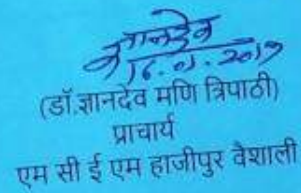 ज्ञानदेव
16.01.2017
(डॉ.ज्ञानदेव मणि त्रिपाठी)
प्राचार्य
एम सी ई एम हाजीपुर वैशाली